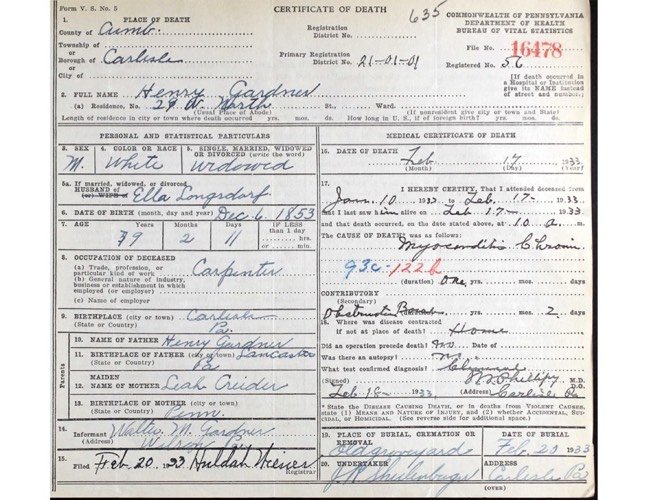 Form V. S. No. 5
CERTIFICATE OF DEATH
635
COMMONWEALTH OF PENNSYLVANIA
DEPARTMENT OF HEALTH
BUREAU OF VITAL STATISTICS
1. PLACE OF DEATH
County of Cumb.
Township of
or
Borough of Carlisle
or
City of
Registration
District No.
Primary Registration
District No. 21-01-01
File No. 16478
Registered No. 56
[If death occurred in
a Hospital or Institution
give its NAME instead of
street and number.]
2. FULL NAME Henry Gardner
(a) Residence, No. 29 W. North St., Ward.
(Usual Place of Abode) (If nonresident give city or town and State)
Length of residence in city or town where death occurred yrs. mos. ds. How long in U. S., if of foreign birth? yrs. mos. ds.
PERSONAL AND STATISTICAL PARTICULARS
3. SEX 4. COLOR OR RACE 5. SINGLE, MARRIED, WIDOWED
OR DIVORCED (write the word)
M. White Widowed
5a. If married, widowed, or divorced,
HUSBAND of
(or) WIFE of Ella Longsdorf
6. DATE OF BIRTH (month, day and year) Dec 6 1853
7. AGE Years Months Days IF LESS
than 1 day
hrs.
or min.
79 2 11
8. OCCUPATION OF DECEASED
(a) Trade, profession, or
particular kind of work Carpenter
(b) General nature of industry,
business or establishment in which
employed (or employer)
(c) Name of employer
9. BIRTHPLACE (city or town) Carlisle
(State or Country) Pa
Parents
10. NAME OF FATHER Henry Gardner
11. BIRTHPLACE OF FATHER (city or town) Lancaster
(State or Country) Pa
12. MAIDEN NAME OF MOTHER Leah Creider
13. BIRTHPLACE OF MOTHER (city or town)
(State or Country) Penn.
14. Informant M. Gardner
(Address)
15. Filed Feb 20 1933 Huldah Wiener
Registrar
MEDICAL CERTIFICATE OF DEATH
16. DATE OF DEATH Feb 17 1933
(Month) (Day) (Year)
17. I HEREBY CERTIFY, That I attended deceased from
Jan. 10 1933 to Feb. 17 1933
that I last saw him alive on Feb 17 1933
and that death occurred, on the date stated above, at 10 a m.
The CAUSE OF DEATH was as follows:
Myocarditis Chronic
93c-122b
(duration) One yrs. mos. ds.
CONTRIBUTORY
(Secondary)
yrs. mos. 2 ds.
18. Where was disease contracted
if not at place of death? Home
Did an operation precede death? No Date of
Was there an autopsy? No
What test confirmed diagnosis? Clinical
(Signed) M.D.
D.O.
Feb 18 1933 (Address) Carlisle Pa
* State the DISEASE CAUSING DEATH, or in deaths from VIOLENT CAUSES,
state (1) MEANS AND NATURE OF INJURY, and (2) whether ACCIDENTAL, SUI-
CIDAL, or HOMICIDAL. (See reverse side for additional space.)
19. PLACE OF BURIAL, CREMATION OR
REMOVAL
Old graveyard
DATE OF BURIAL
Feb. 20 1933
20. UNDERTAKER ADDRESS
Carlisle Pa